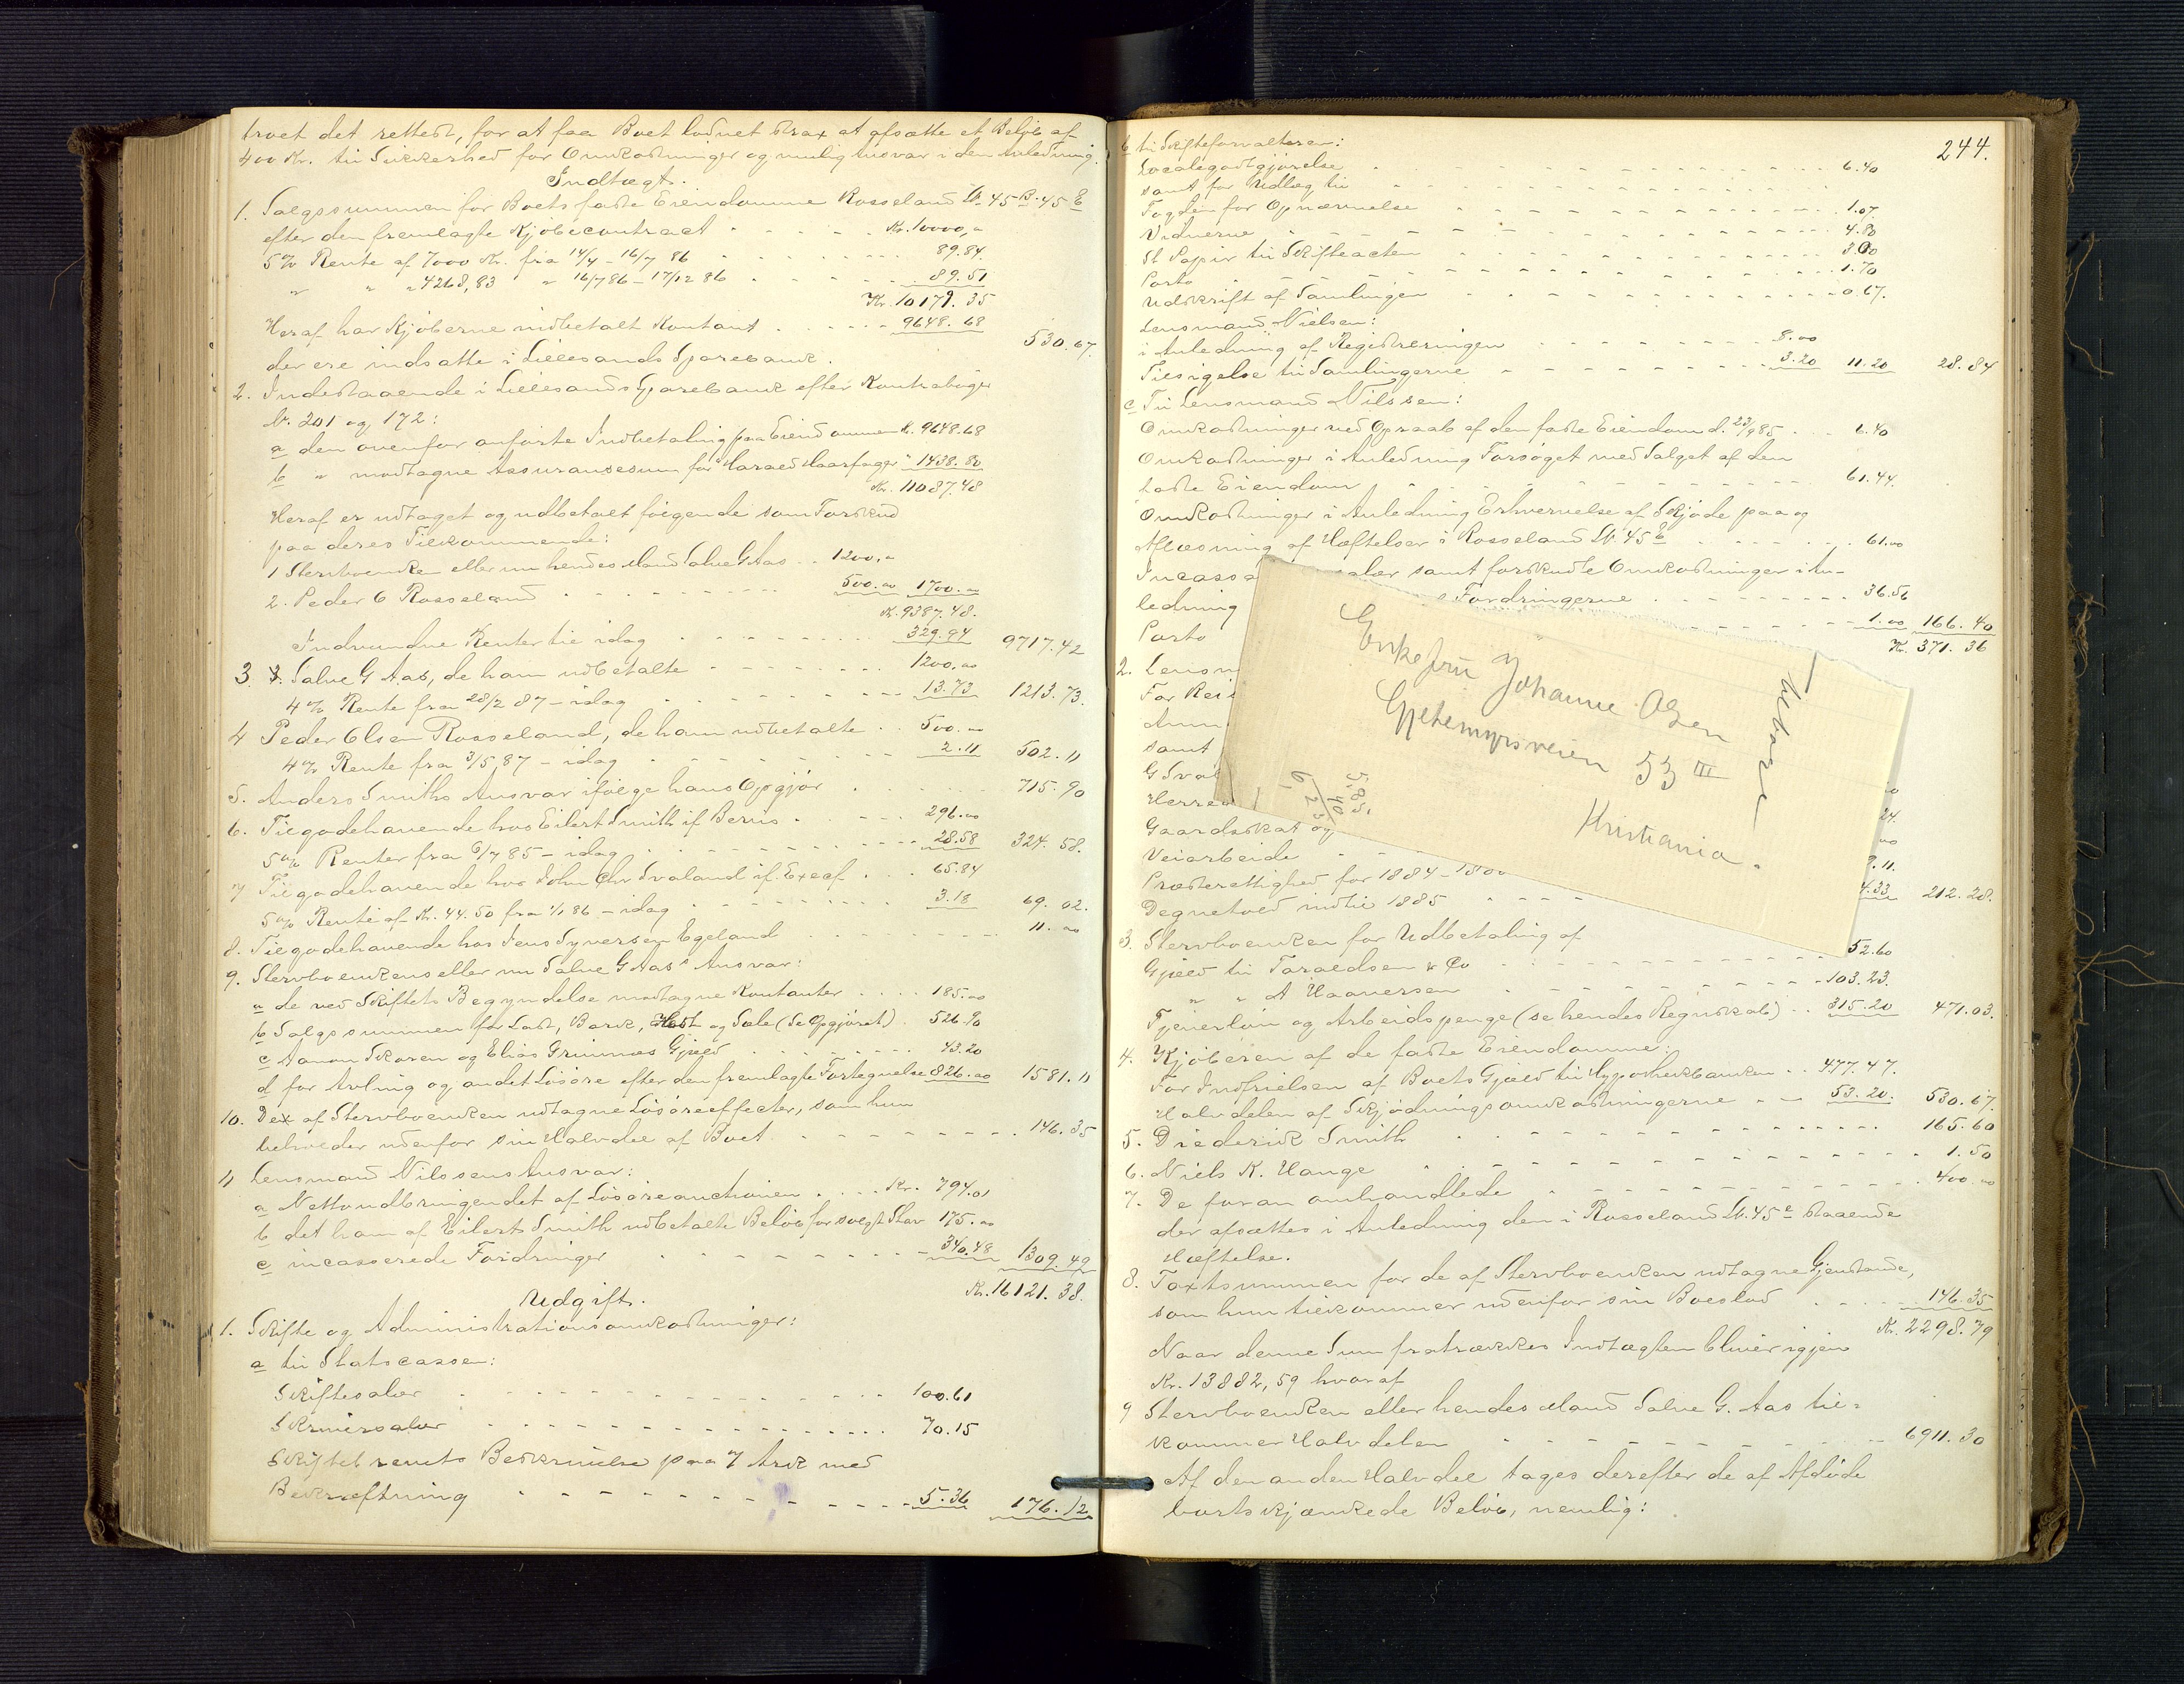 troet det rettest, for at faa Boet sluttet strax at afsætte et Beløb af
400 Kr. til Sikkerhed for Omkostninger og mulig Ansvar i den Anledning.
Indtægt.
1. Salgssummen for Boets faste Eiendomme Rosseland Lb. 45 B. 45 E
efter den fremlagte Kjøbecontract Kr. 10000,"
5% Rente af 7000 Kr. fra 14/4 - 16/7 86 89.84
" " " 4268,83 " 16/7 86 - 17/12 86 89.51
Kr. 10179.35
Heraf har Kjøberne indbetalt Kontant 9648.68 530.67.
der ere indsatte i Lillesands Sparebank.
2. Indestaaende i Lillesands Sparebank efter Kontrabøger
Nr. 201 og 172:
a den ovenfor anførte Indbetaling paa Eiendommen K. 9648.68
b " modtagne Assurancesum for "Harald Haarfager" 1438.80
Kr. 11087.48
Heraf er udtaget og udbetalt følgende som Forskud
paa deres Tilkommende:
1 Stervboenke eller nu hendes Mand Salve G Aas 1200,"
2. Peder O Rosseland 500.00 1700.00
Kr. 9387.48.
Indvundne Renter til idag 329.94 9717.42
3. Salve G Aas, de ham udbetalte 1200.00
4% Rente fra 28/2 87 - idag 13.73 1213.73.
4 Peder Olsen Rosseland, de ham udbetalte 500.00
4% Rente fra 3/5 87 - idag 2.11 502.11
5. Anders Smiths Ansvar ifølge hans Opgjør 715.90
6. Tilgodehavende hos Eilert Smith if Bevis 296.00
5% Renter fra 6/7 85 - idag 28.58 324.58.
7 Tilgodehavende hos John Chr Svaland if. Execf 65.84
5% Rente af Kr. 44.50 fra 1/1 86 - idag 3.18 69.02.
8. Tilgodehavende hos Jens Syversen Egeland 11.00
9. Stervboenkens eller nu Salve G Aas' Ansvar:
a de ved Skiftets Begyndelse modtagne Kontanter 185.00
b Salgssummen for Last, Bark, Hest og Sæle (se Opgjøret) 526.90
c Aanon Skaren og Elias Grimnes Gjæld 43.20
d for Avling og andet Løsøre efter den fremlagte Fortegnelse 826.00 1581.11
10. De af Stervboenken udtagne Løsøreeffecter, som hun
beholder udenfor sin Halvdel af Boet 146.35
11 Lensmand Nilssens Ansvar:
a Nettoudbringendet af Løsøreauctionen Kr. 794.01
b det ham af Eilert Smith udbetalte Beløb for solgt Stav 175.00
c incasserede Fordringer 340.48 1309.49
Kr. 16121.38.
Udgift.
1. Skifte og Administrationsomkostninger:
a til Statscassen:
Skiftesalær 100.61
Skriversalær 70.15
Skiftebrevets Beskrivelse paa 7 Ark med
Bekræftning 5.36 176.12
244.
b til Skifteforvalteren:
Localegodtgjørelse 6.40
samt for Udlæg til
Fogden for Opnævnelse 1.07.
Vidnerne 4.80
St Papir til Skifteacten 3.00
Porto 1.70
Udskrift af Samlingen 0.67.
Lensmand Nielsen:
i Anledning af Registreringen 8.00
Tilsigelse til Samlingerne 3.20 11.20 28.84
c Til Lensmand Nilssen:
Omkostninger ved Opraab af den faste Eiendom d. 23/9 85 6.40
Omkostninger i Anledning Forsøget med Salget af den
faste Eiendom 61.44.
Omkostninger i Anledning Erhvervelse af Skjøde paa og
Aflæsning af Hæftelser i Rosseland Lb. 45 E 61.00
Incassa salær samt forskudte Omkostninger i An-
ledning Fordringerne 36.56
Porto 1.00 166.40
Kr. 371.36
2. Lensm
For Reis
samt
G Sval
Herred
24.
Gaardskat og
Veiarbeide 11.
Præsterettighed for 1884 -
Degnetold indtil 1885 4.33 212.28.
3. Stervboenken for Udbetaling af
Gjæld til Taraldsen & Co 52.60
" " A Haaversen 103.23.
Tjenerløn og Arbeidspenge (se hendes Regnskab) 315.20 471.03.
4. Kjøberen af de faste Eiendomme:
For Indfrielsen af Boets Gjæld til Hypothekbanken 477.47.
Halvdelen af Skjødningsomkostningerne 53.20. 530.67.
5. Diederik Smith 165.60
6. Niels K. Hauge 1.50
7. De foran omhandlede 400.00
der afsættes i Anledning den i Rosseland Lb. 45 e staaende
Hæftelse.
8. Taxtsummen for de af Stervboenken udtagne Gjenstande,
som hun tilkommer udenfor sin Boeslod 146.35
Kr. 2298.79
Naar denne Sum fratrækkes Indtægten bliver igjen
Kr. 13822,59 hvoraf
9 Stervboenken eller hendes Mand Salve G. Aas til-
kommer Halvdelen 6911.30
Af den anden Halvdel tages derefter de af Afdøde
bortskjænkede Beløb, nemlig:
Enkefru Johanne Olsen
Gjetemyrsveien 53 III
Kristiania.
5.85.
40
6 25